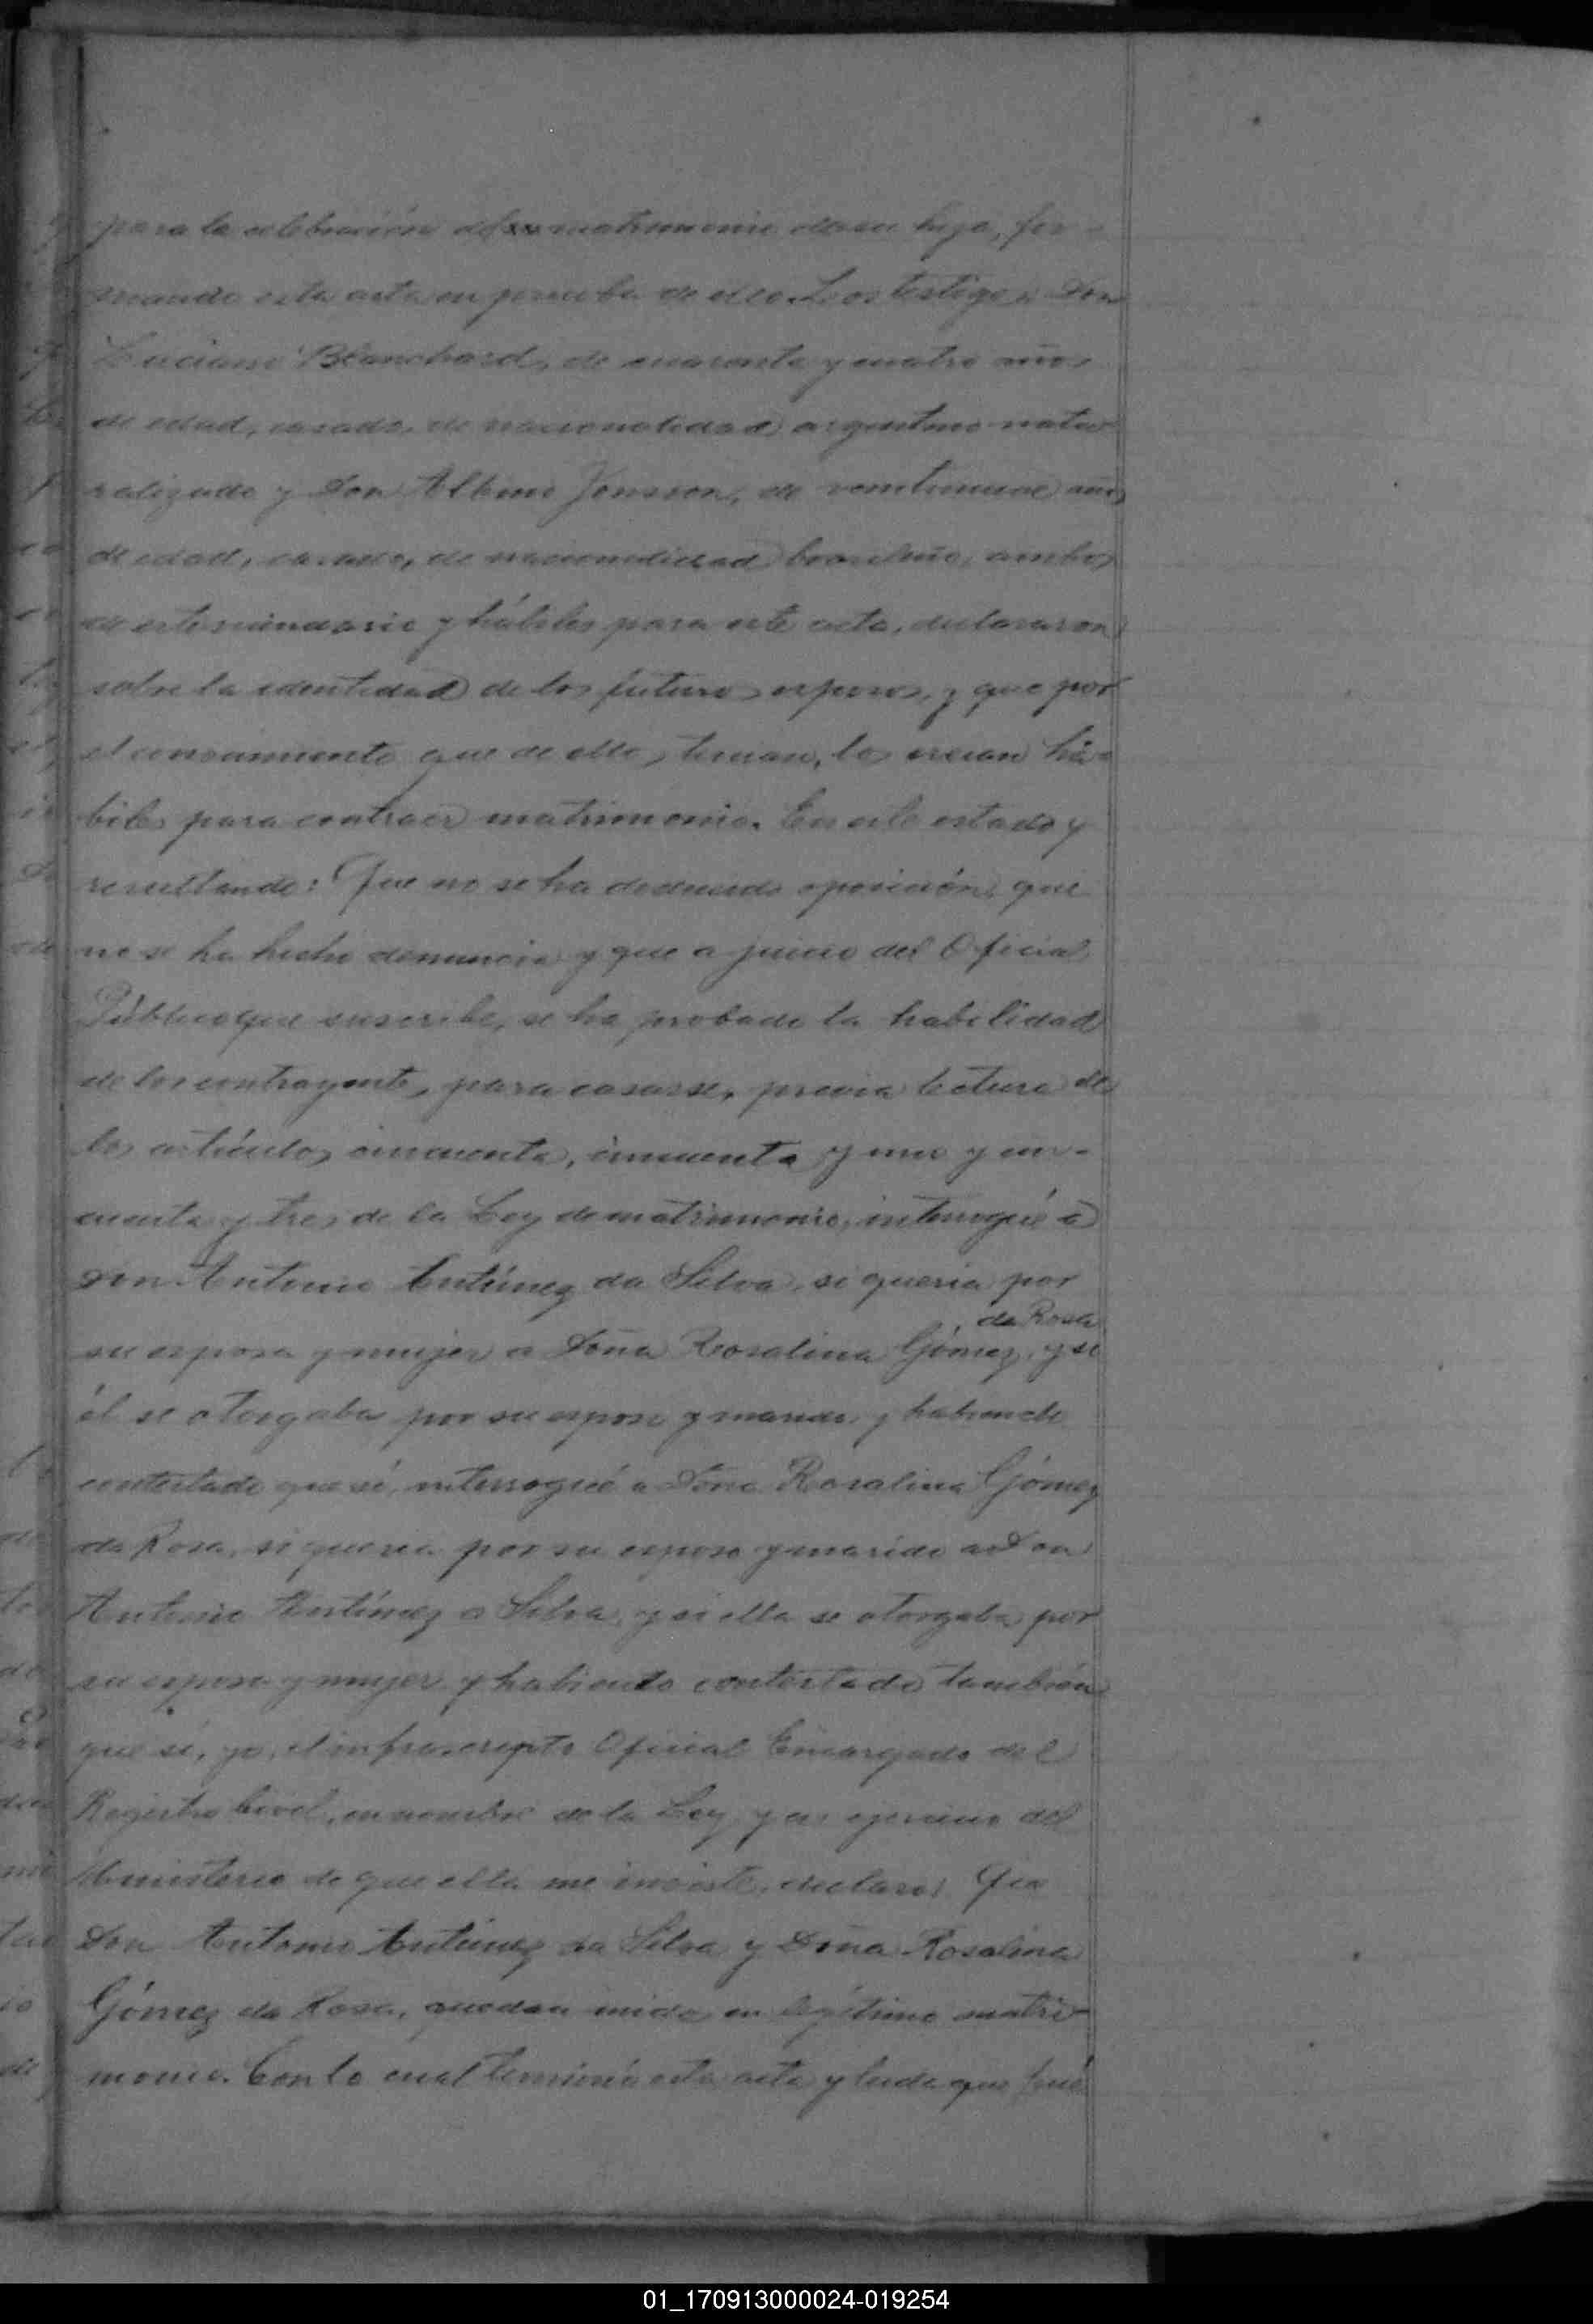 para la celebración del matrimonio de su hija, fir-
mando esta acta en prueba de ello. Los testigos Don
Luciano Blanchard, de cuarenta y cuatro años
de edad, casado, de nacionalidad argentino natu-
ralizado y Don Albino Jonsson, de veintinueve años
de edad, casado, de nacionalidad brasileño, ambos
de este vecindario y hábiles para este acta, declararon
sobre la identidad de los futuros esposos, y que por
el conocimiento que de ellos tenian, los creian há-
biles para contraer matrimonio. En este estado y
resultando: Que no se ha deducido oposición, que
no se ha hecho denuncia y que a juicio del Oficial
Público que suscribe, se ha probado la habilidad
de los contrayentes para casarse, previa lectura de
los artículos cincuenta, cincuenta y uno y cin-
cuenta y tres de la Ley de matrimonio, interrogué a
Don Antonio Antúnez da Silva, si queria por
da Rosa
su esposa y mujer a Doña Rosalina Gómez, y si
él se otorgaba por su esposo y marido, y habiendo
contestado que sí, interrogué a Doña Rosalina Gómez
da Rosa, si queria por su esposo y marido a Don
Antonio Antúnez a Silva, y si ella se otorgaba por
su esposa y mujer y habiendo contestado también
que sí, yo, el infrascripto Oficial Encargado del
Registro Civil, en nombre de la Ley y en ejercicio del
Ministerio de que ella me inviste, declaro: Que
Don Antonio Antúnez da Silva y Doña Rosalina
Gómez da Rosa, quedan unidos en legítimo matri-
monio. Con lo cual terminó esta acta y leida que fué
01_170913000024-019254